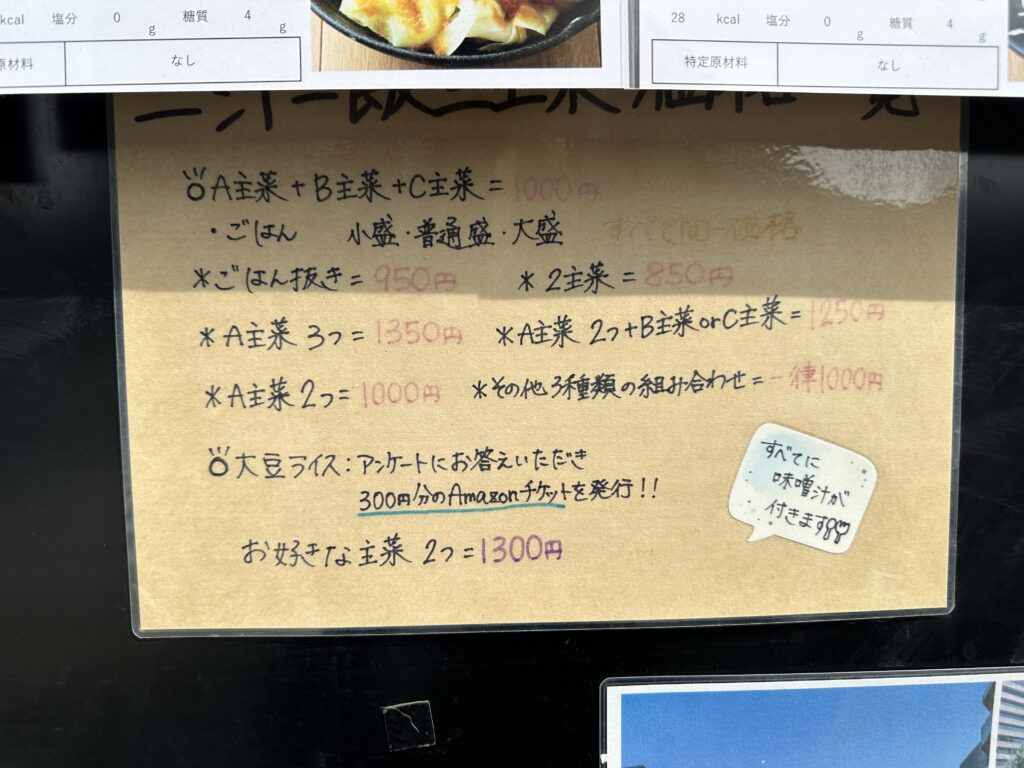 kcal 塩分 0 g 糖質 4 g
原材料 なし
28 kcal 塩分 0 g 糖質 4 g
特定原材料 なし
A主菜+B主菜+C主菜=1000円
・ごはん 小盛・普通盛・大盛 すべて同一価格
*ごはん抜き=950円 *2主菜=850円
*A主菜 3つ=1350円 *A主菜 2つ+B主菜orC主菜=1250円
*A主菜 2つ=1000円 *その他3種類の組み合わせ=一律1000円
大豆ライス:アンケートにお答えいただき
300円分のAmazonチケットを発行!!
お好きな主菜 2つ=1300円
すべてに
味噌汁が
付きます